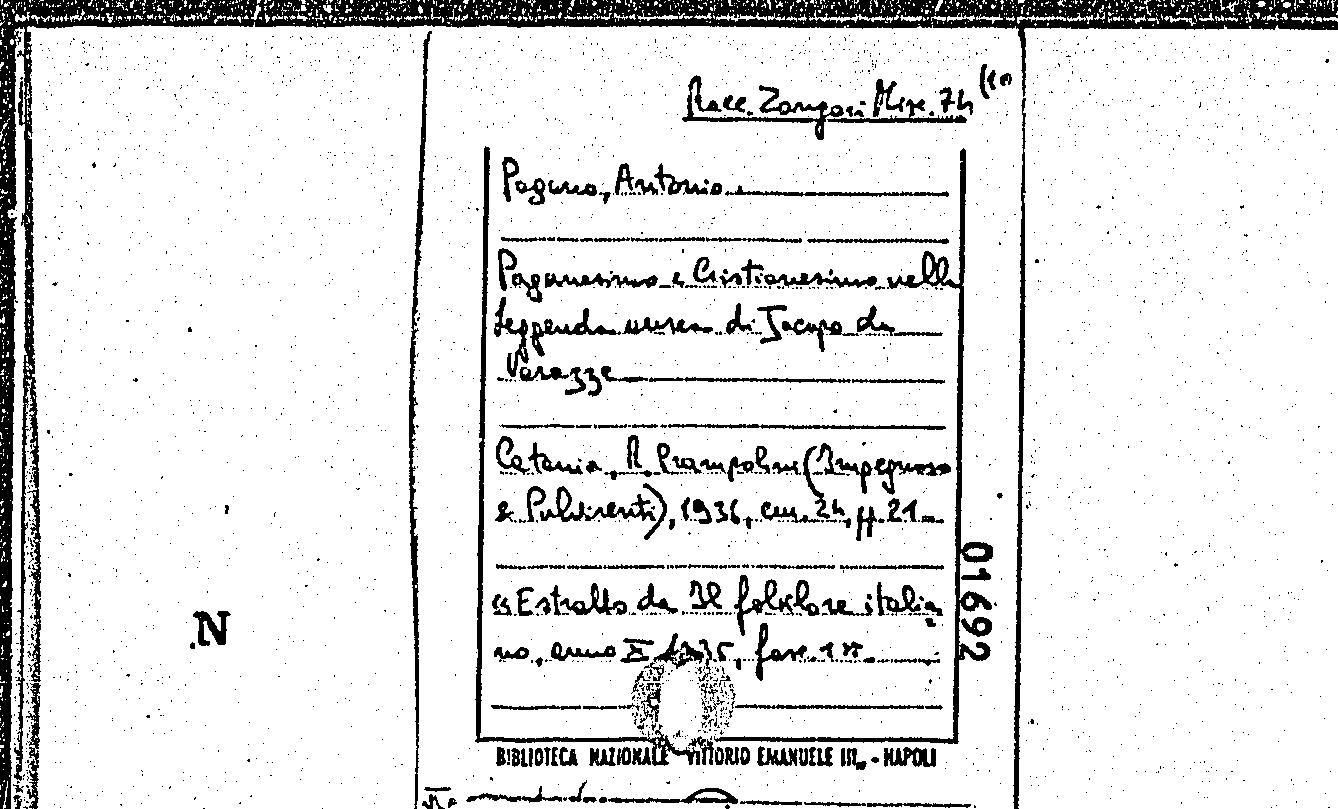 Racc. Zangari Misc. 74 (10
Pagano, Antonio.
Paganesimo e Cristianesimo nella
Leggenda aurea di Jacopo da
Varazze
Catania, R. Prampolini (Impegnoso
& Pulvirenti), 1936, cm. 24, pp. 21
01692
« Estratto da Il folklore italia
no, anno X 1935, fasc. 1
N
BIBLIOTECA NAZIONALE VITTORIO EMANUELE III - NAPOLI